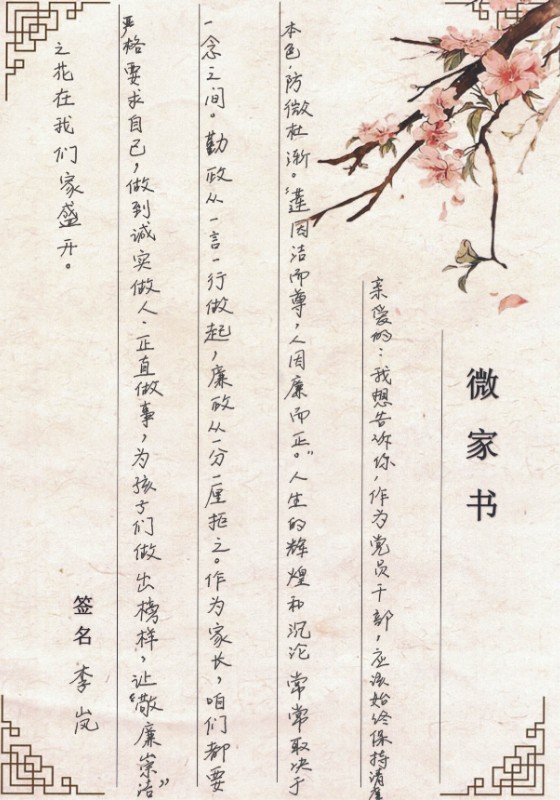 微家书
亲爱的：我想告诉你，作为党员干部，应该始终保持清廉
本色，防微杜渐。“莲因洁而尊，人因廉而正。”人生的辉煌和沉沦 常常取决于
一念之间。勤政从一言一行做起，廉政从一分一厘拒之。作为家长，咱们都要
严格要求自己，做到诚实做人、正直做事，为孩子们做出榜样，让“敬廉崇洁”
之花在我们家盛开。
签名 李岚